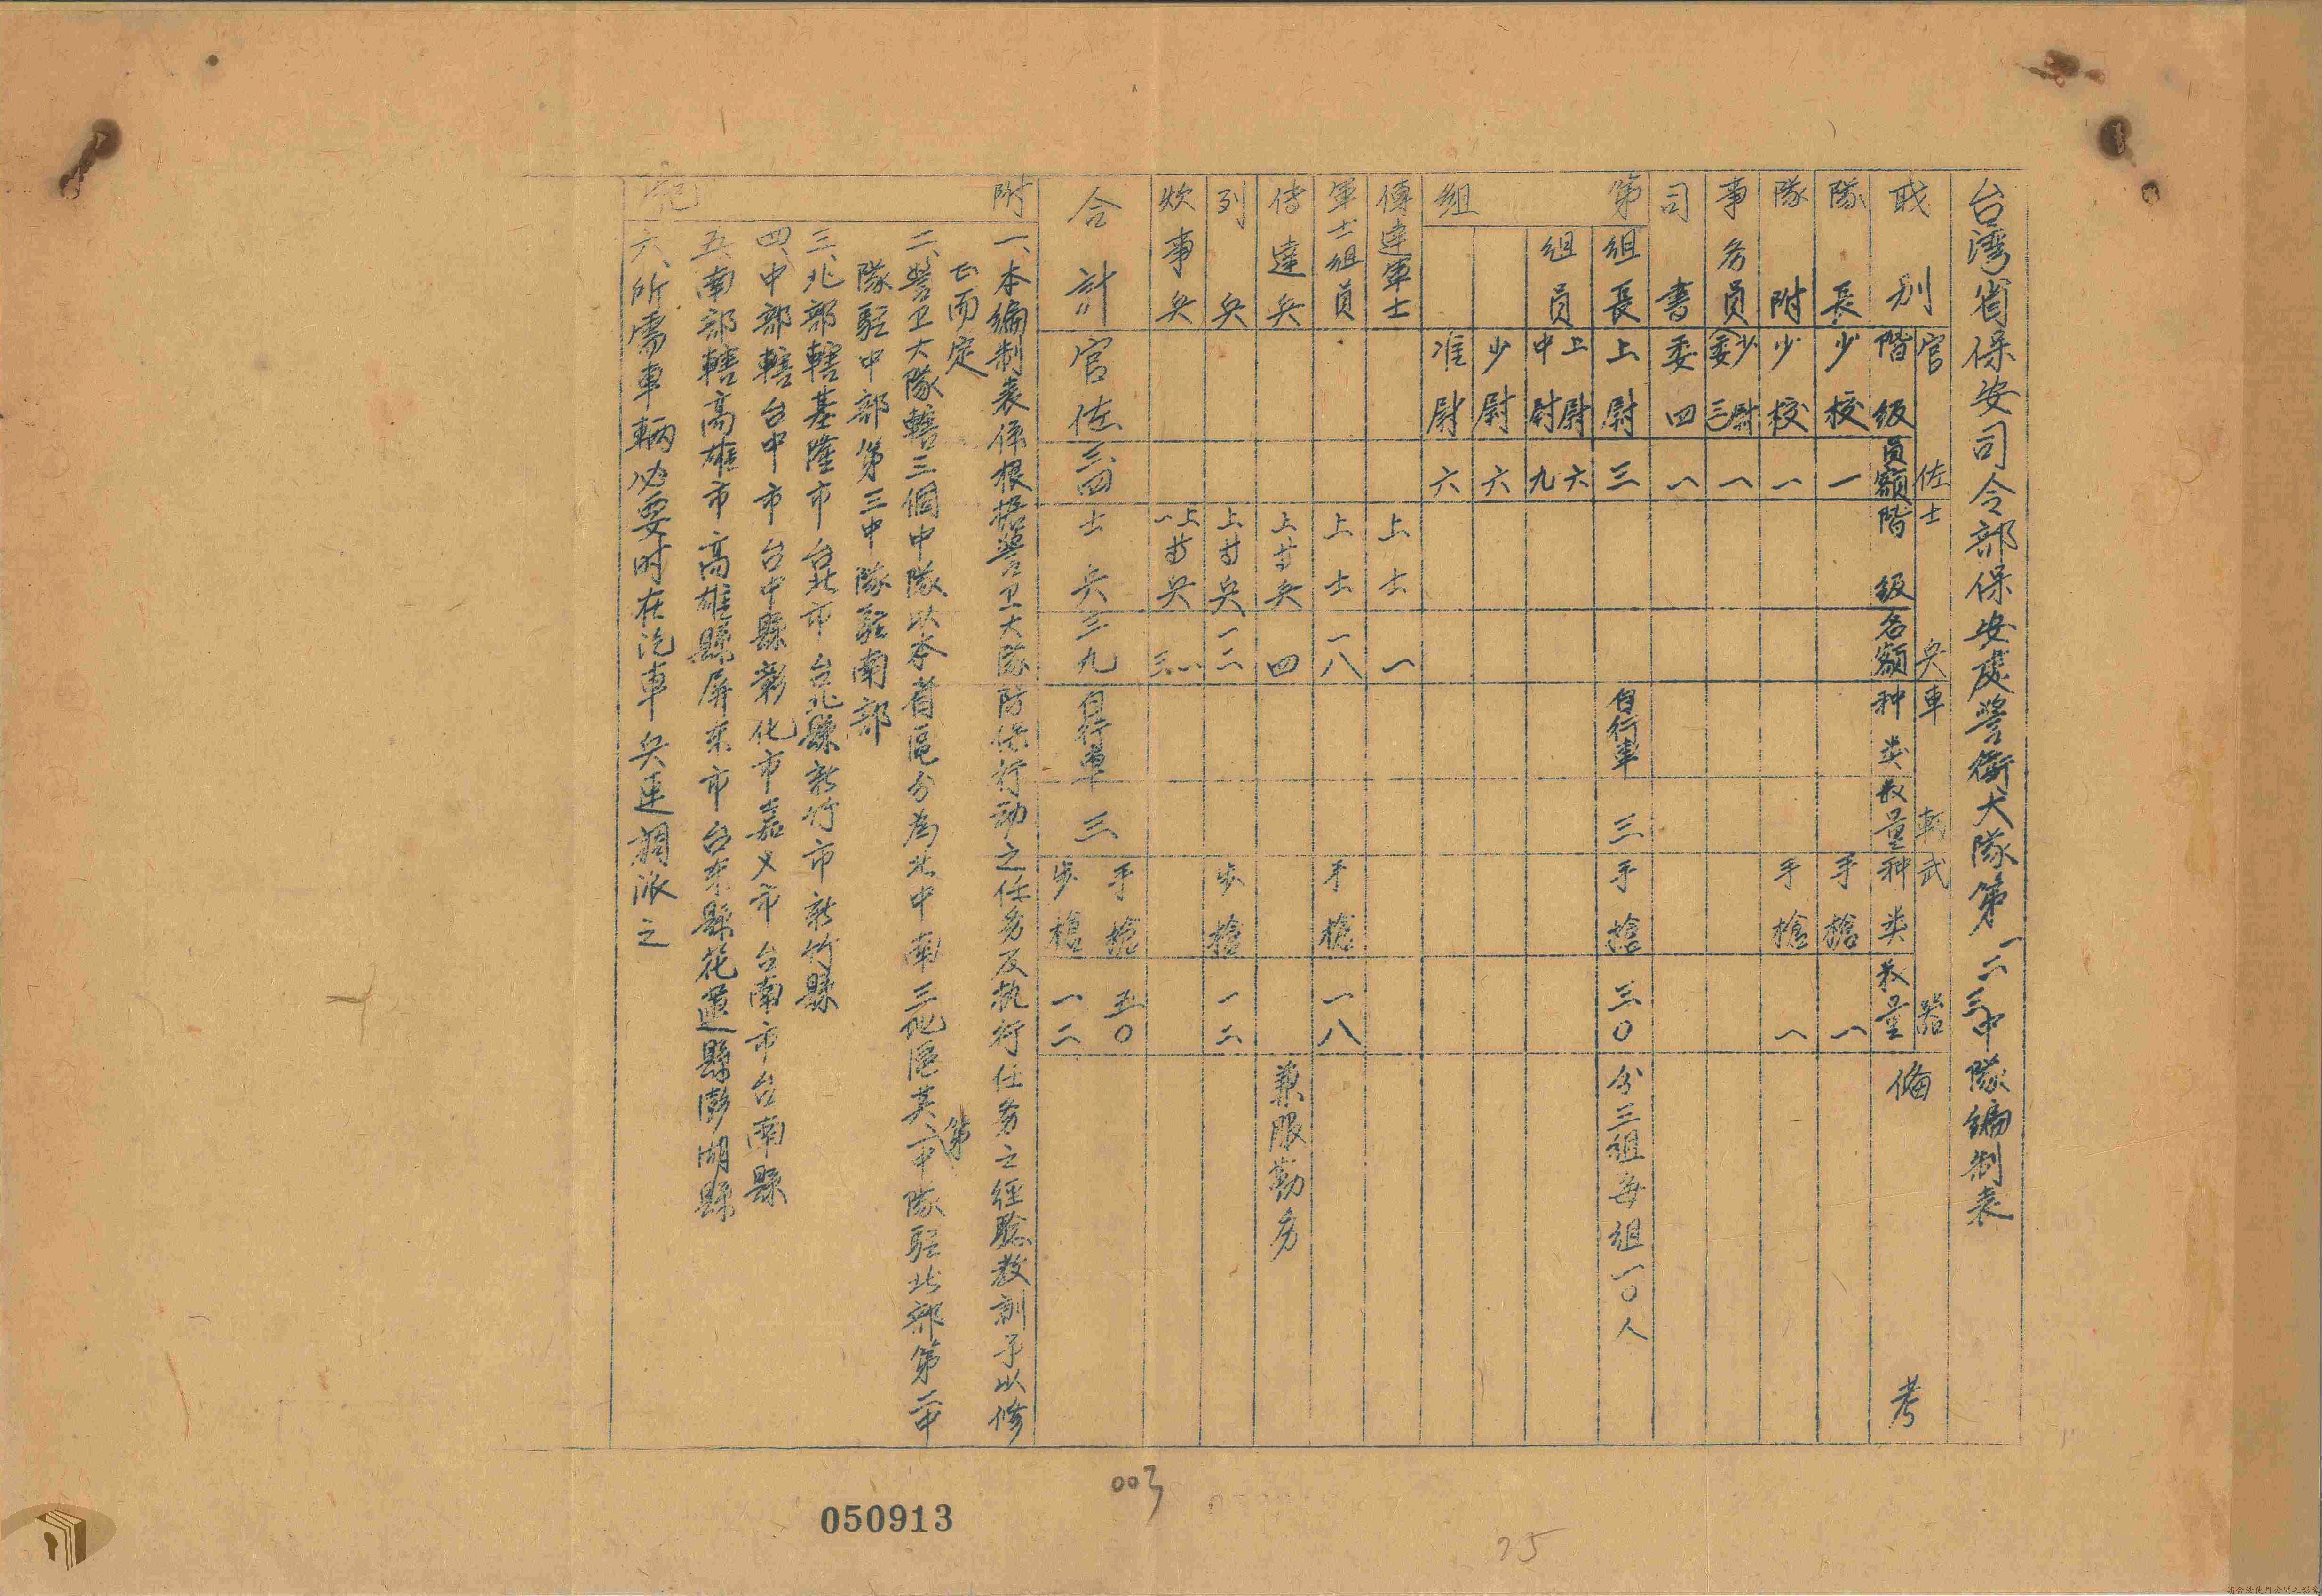 台湾省保安司令部保安處警衛大隊第一二三中隊編制表
職別 官佐 階級 員額 士兵 階級 名額 車輛 种类 数量 武器 种类 数量 備考
隊長 少校 一 手槍 一
隊附 少校 一 手槍 一
事务員 少尉 委三 一
司書 委四 一
第 組 組長 上尉 三 自行車 三 手槍 三〇 分三組每組一〇人
組員 上尉 六 中尉 九
少尉 六
准尉 六
傳達軍士 上士 一
軍士組員 上士 一八 手槍 一八
傳達兵 上等兵 四 兼服勤务
列兵 上等兵 一二 步槍 一二
炊事兵 上 一等兵 一 三
合計 官佐 三四 士兵 三九 自行車 三 手槍 五〇 步槍 一二
附記
一、本編制表係根據警卫大隊防保行动之任务及执行任务之經驗教訓予以修
正而定
二、警卫大隊轄三個中隊以本省區分為北中南三地區其第一中隊駐北部第二中
隊駐中部第三中隊駐南部
三、北部轄基隆市台北市台北縣新竹市新竹縣
四、中部轄台中市台中縣彰化市嘉义市台南市台南縣
五、南部轄高雄市高雄縣屏東市台東縣花蓮縣澎湖縣
六、所需車輛必要时在汽車兵連調派之
003
050913
25